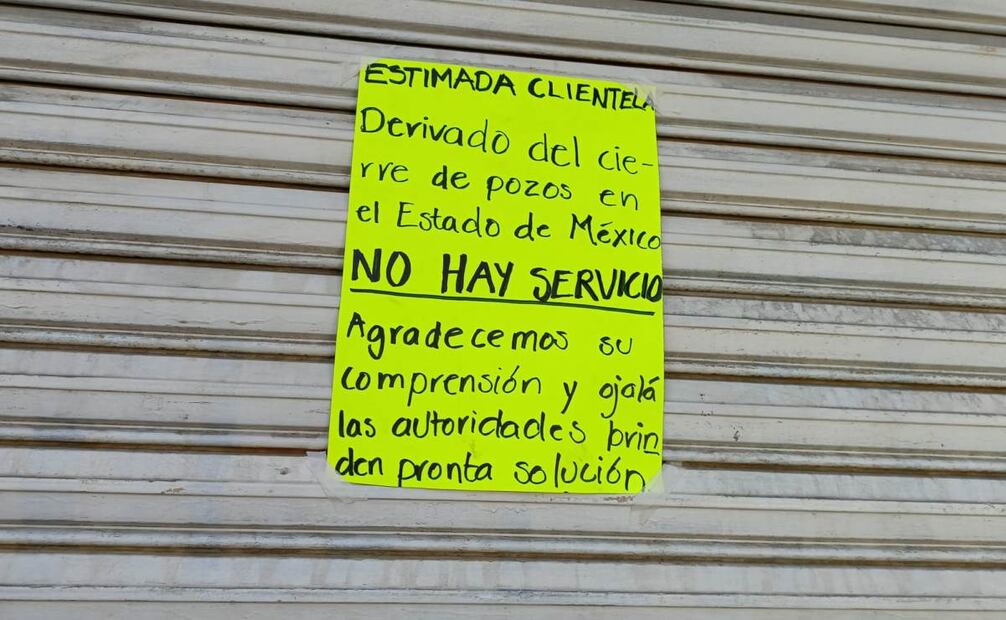 ESTIMADA CLIENTELA
Derivado del cie-
rre de pozos en
el Estado de México
NO HAY SERVICIO
Agradecemos su
comprensión y ojalá
las autoridades brin
den pronta solución